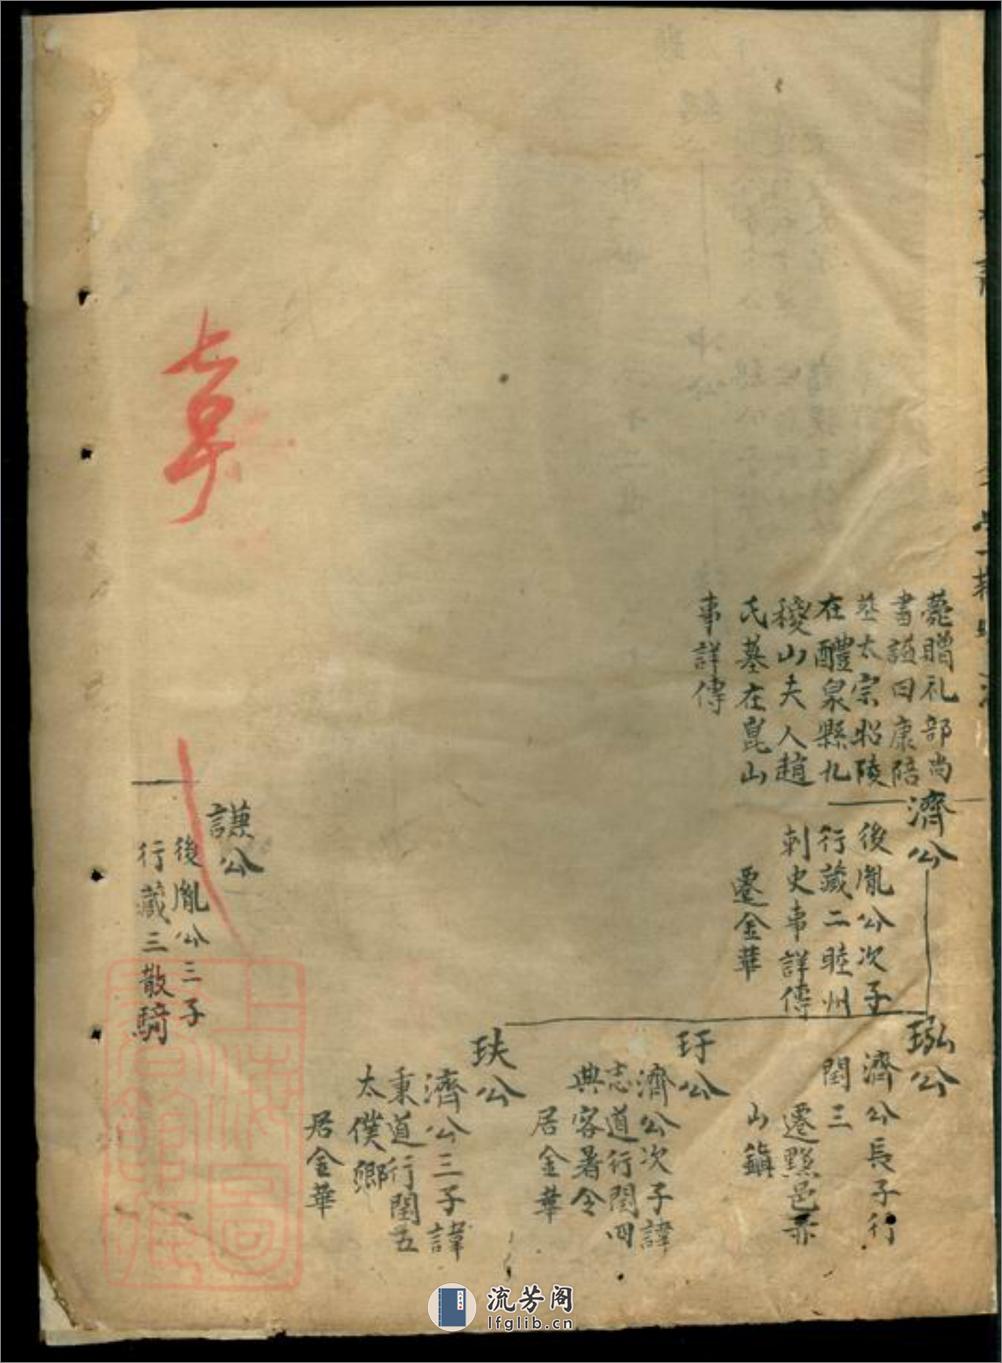 薨贈礼部尚
書謚曰康陪
葬太宗昭陵
在醴泉縣九
稷山夫人趙
氏墓在崑山
事詳傳
濟公
後胤公次子
行藏二睦州
刺史事詳傳
遷金華
謙公
後胤公三子
行藏三散騎
珎公
濟公長子行
閏三
遷黟邑赤
山鎮
玗公
濟公次子諱
志道行閏四
典容署令
居金華
玞公
濟公三子諱
秉道行閏五
太僕卿
居金華
上海圖
書館藏
流芳阁
lfglib.cn